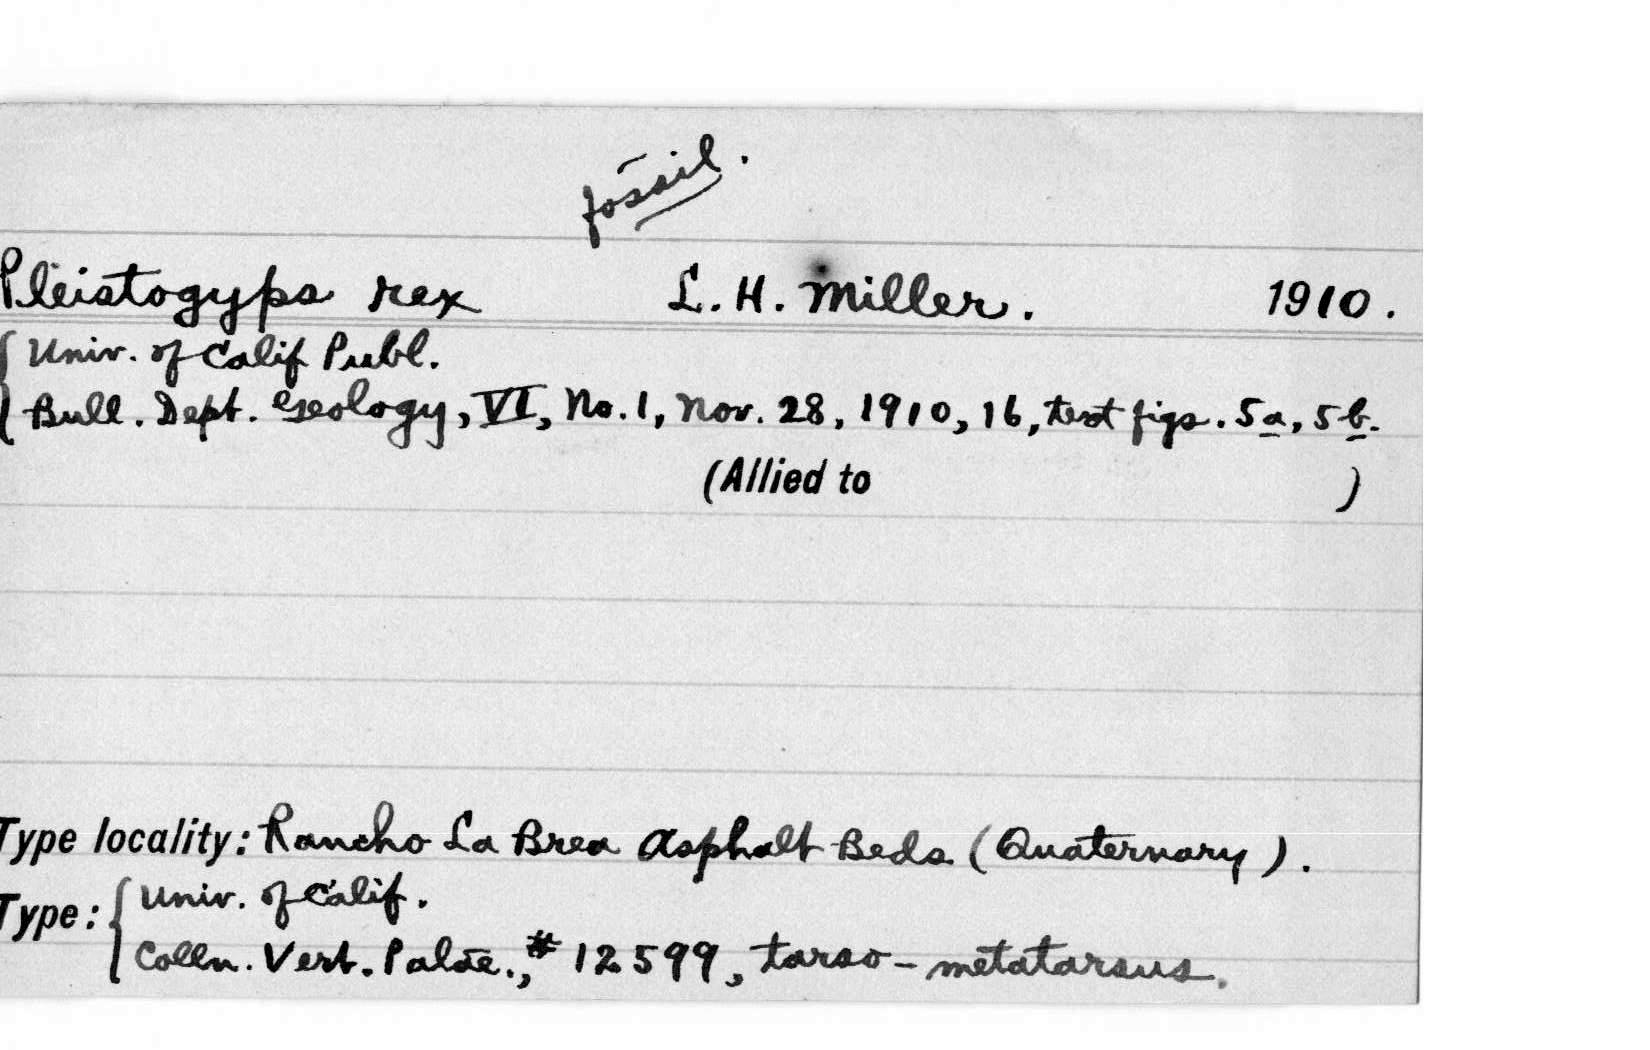 fossil.
Pleistogyps rex L. H. Miller. 1910.
Univ. of Calif Publ.
Bull. Dept. Geology, VI, No. 1, Nov. 28, 1910, 16, text figs. 5a, 5b.
(Allied to )
Type locality: Rancho La Brea Asphalt Beds (Quaternary).
Type: Univ. of Calif.
Colln. Vert. Palae., # 12599, tarso-metatarsus.